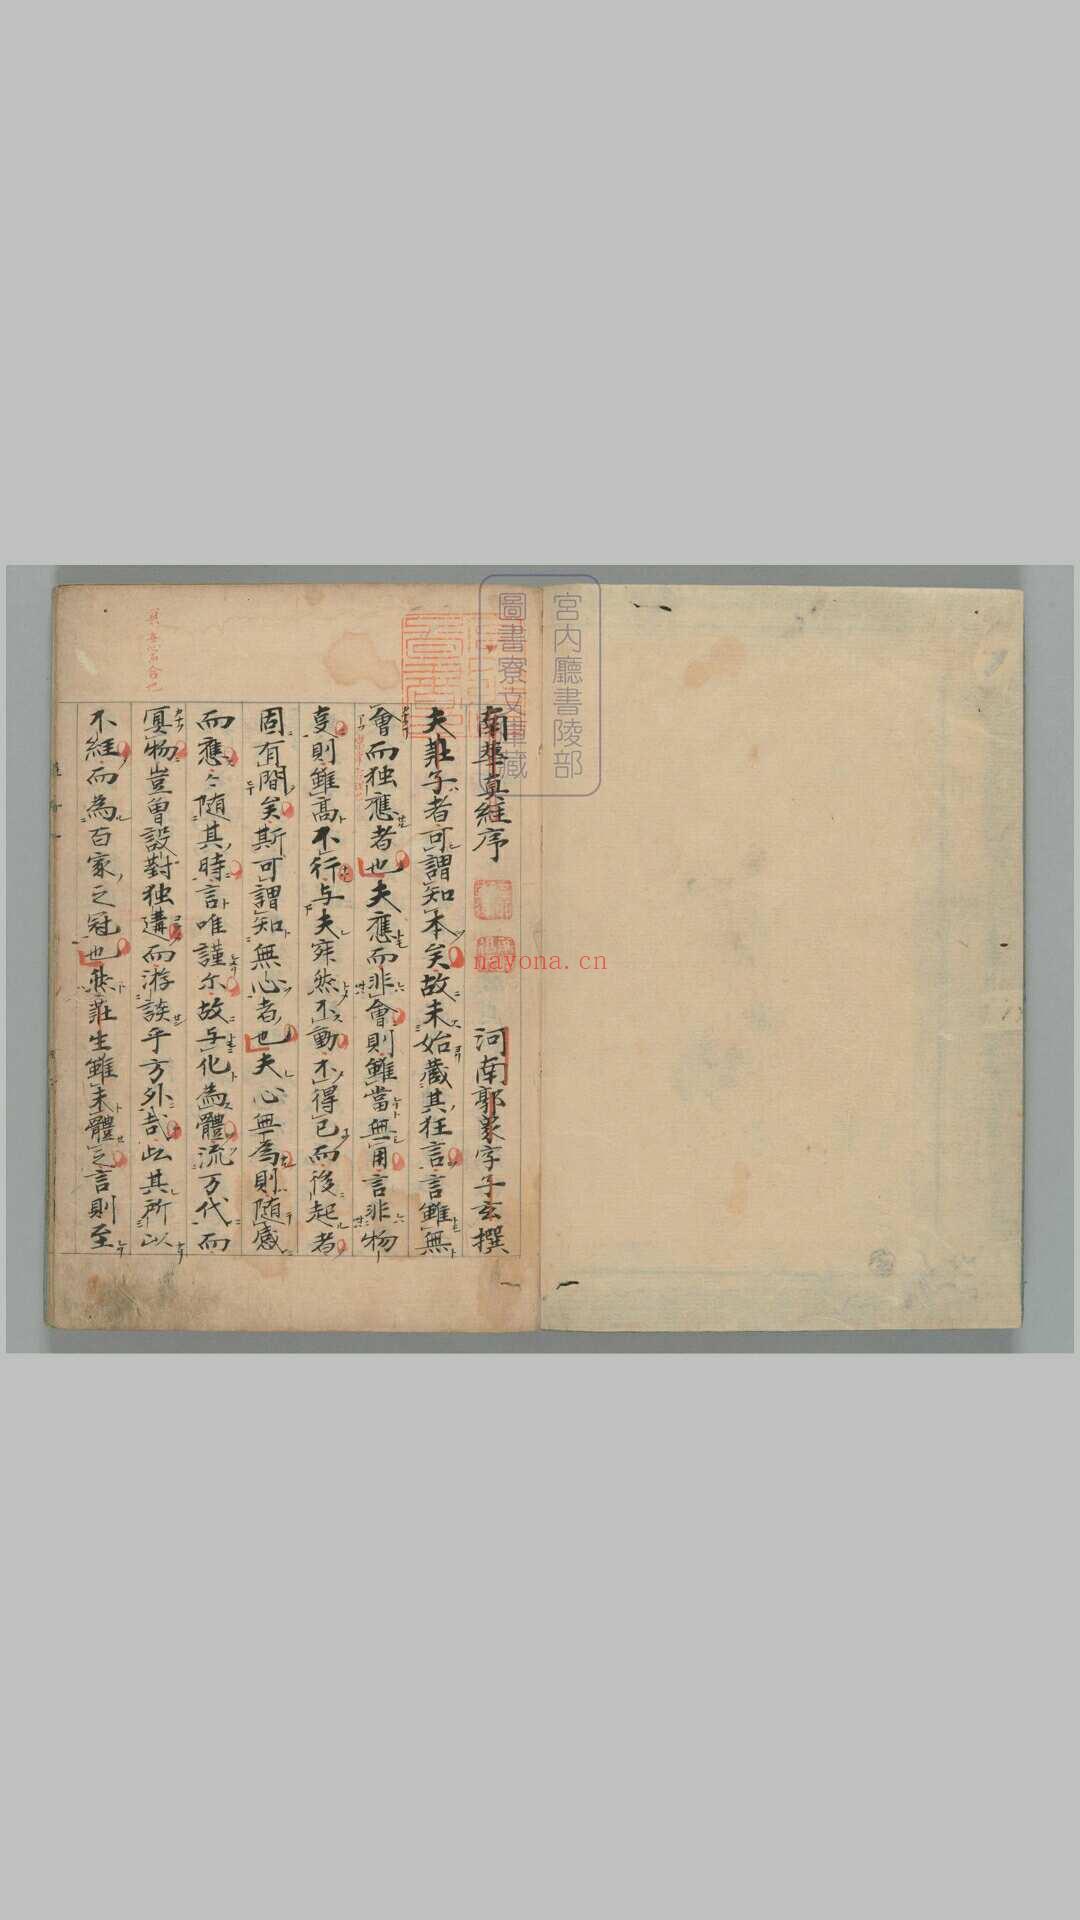 宮内廳書陵部
圖書寮文庫藏
南華真経序
河南郭象字子玄撰
夫莊子者可謂知本矣故未始藏其狂言言雖無
會而独應者也夫應而非會則雖當無用言非物
㕝則雖高不行与夫寂然不動不得已而後起者
固有間矣斯可謂知無心者也夫心無為則随感
而應〻随其時言唯謹尓故与化為體流万代而
冥物豈曽設對独遘而游談乎方外哉此其所以
不経而為百家之冠也然莊生雖未體之言則至
nayona.cn